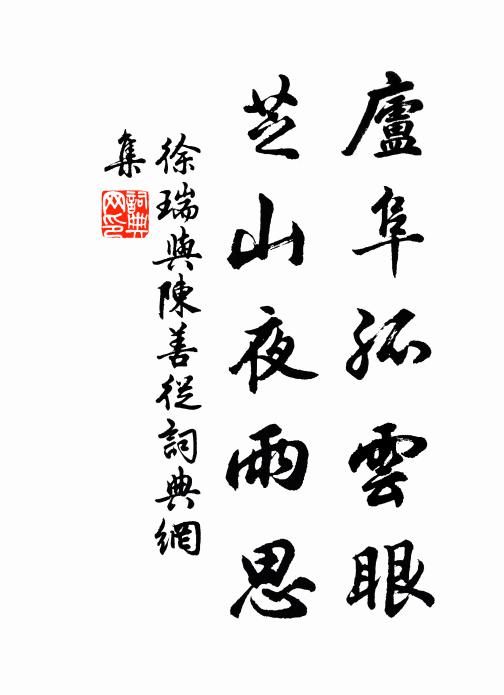 廬阜孤雲眼
芝山夜雨思
徐瑞與陳善從詞典網
集
詞典网印